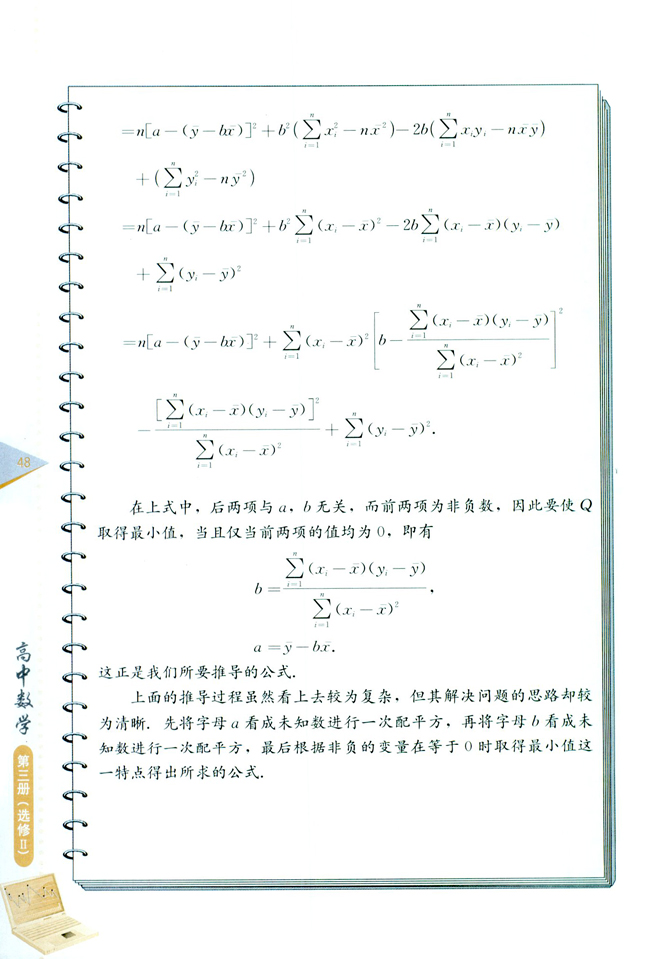 =n[a-(ȳ-bx̄)]²+b²(∑_{i=1}^{n} x_i²-nx̄²)-2b(∑_{i=1}^{n} x_iy_i-nx̄ȳ)
+(∑_{i=1}^{n} y_i²-nȳ²)
=n[a-(ȳ-bx̄)]²+b²∑_{i=1}^{n}(x_i-x̄)²-2b∑_{i=1}^{n}(x_i-x̄)(y_i-ȳ)
+∑_{i=1}^{n}(y_i-ȳ)²
=n[a-(ȳ-bx̄)]²+∑_{i=1}^{n}(x_i-x̄)²[b-\frac{∑_{i=1}^{n}(x_i-x̄)(y_i-ȳ)}{∑_{i=1}^{n}(x_i-x̄)²}]²
-\frac{[∑_{i=1}^{n}(x_i-x̄)(y_i-ȳ)]²}{∑_{i=1}^{n}(x_i-x̄)²}+∑_{i=1}^{n}(y_i-ȳ)².
48
在上式中，后两项与a，b无关，而前两项为非负数，因此要使Q
取得最小值，当且仅当前两项的值均为0，即有
b=\frac{∑_{i=1}^{n}(x_i-x̄)(y_i-ȳ)}{∑_{i=1}^{n}(x_i-x̄)²}，
a=ȳ-bx̄.
这正是我们所要推导的公式.
上面的推导过程虽然看上去较为复杂，但其解决问题的思路却较
为清晰. 先将字母a看成未知数进行一次配平方，再将字母b看成未
知数进行一次配平方，最后根据非负的变量在等于0时取得最小值这
一特点得出所求的公式.
高中数学
第三册（选修Ⅱ）